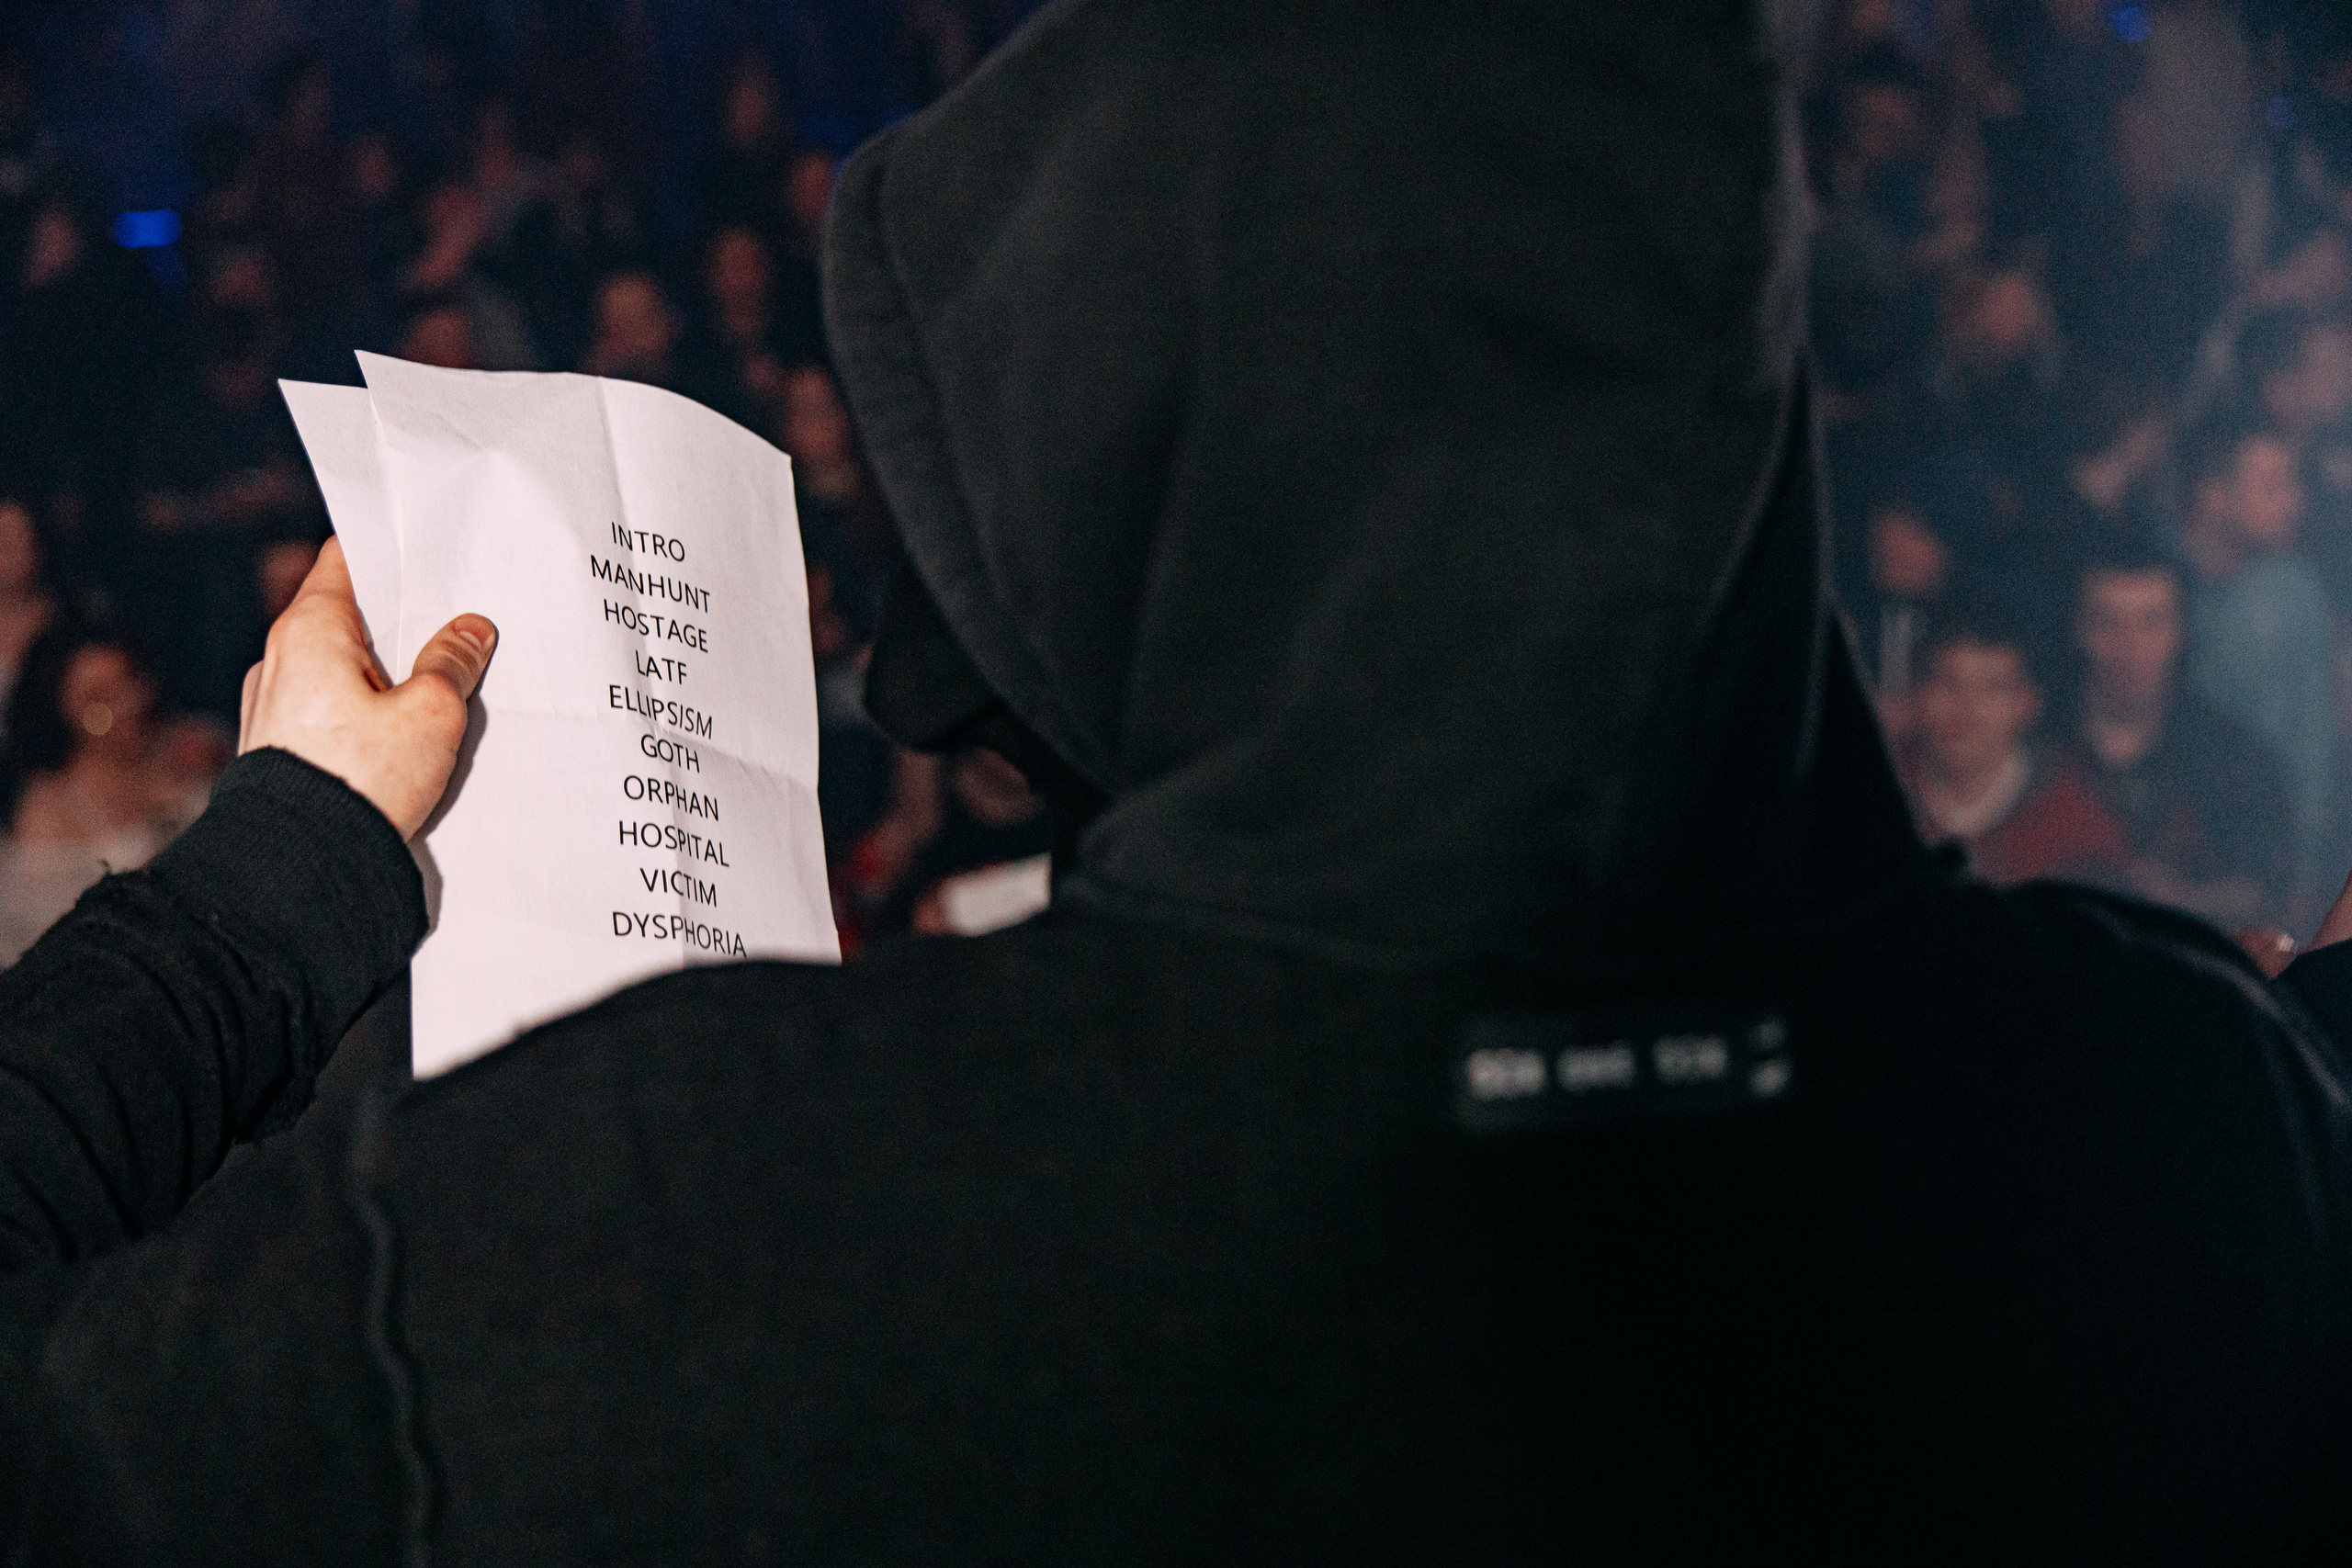 INTRO
MANHUNT
HOSTAGE
LATF
ELLIPSISM
GOTH
ORPHAN
HOSPITAL
VICTIM
DYSPHORIA